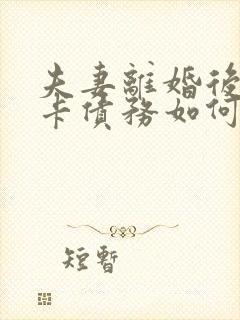 夫妻離婚後
卡債務如何
短暫